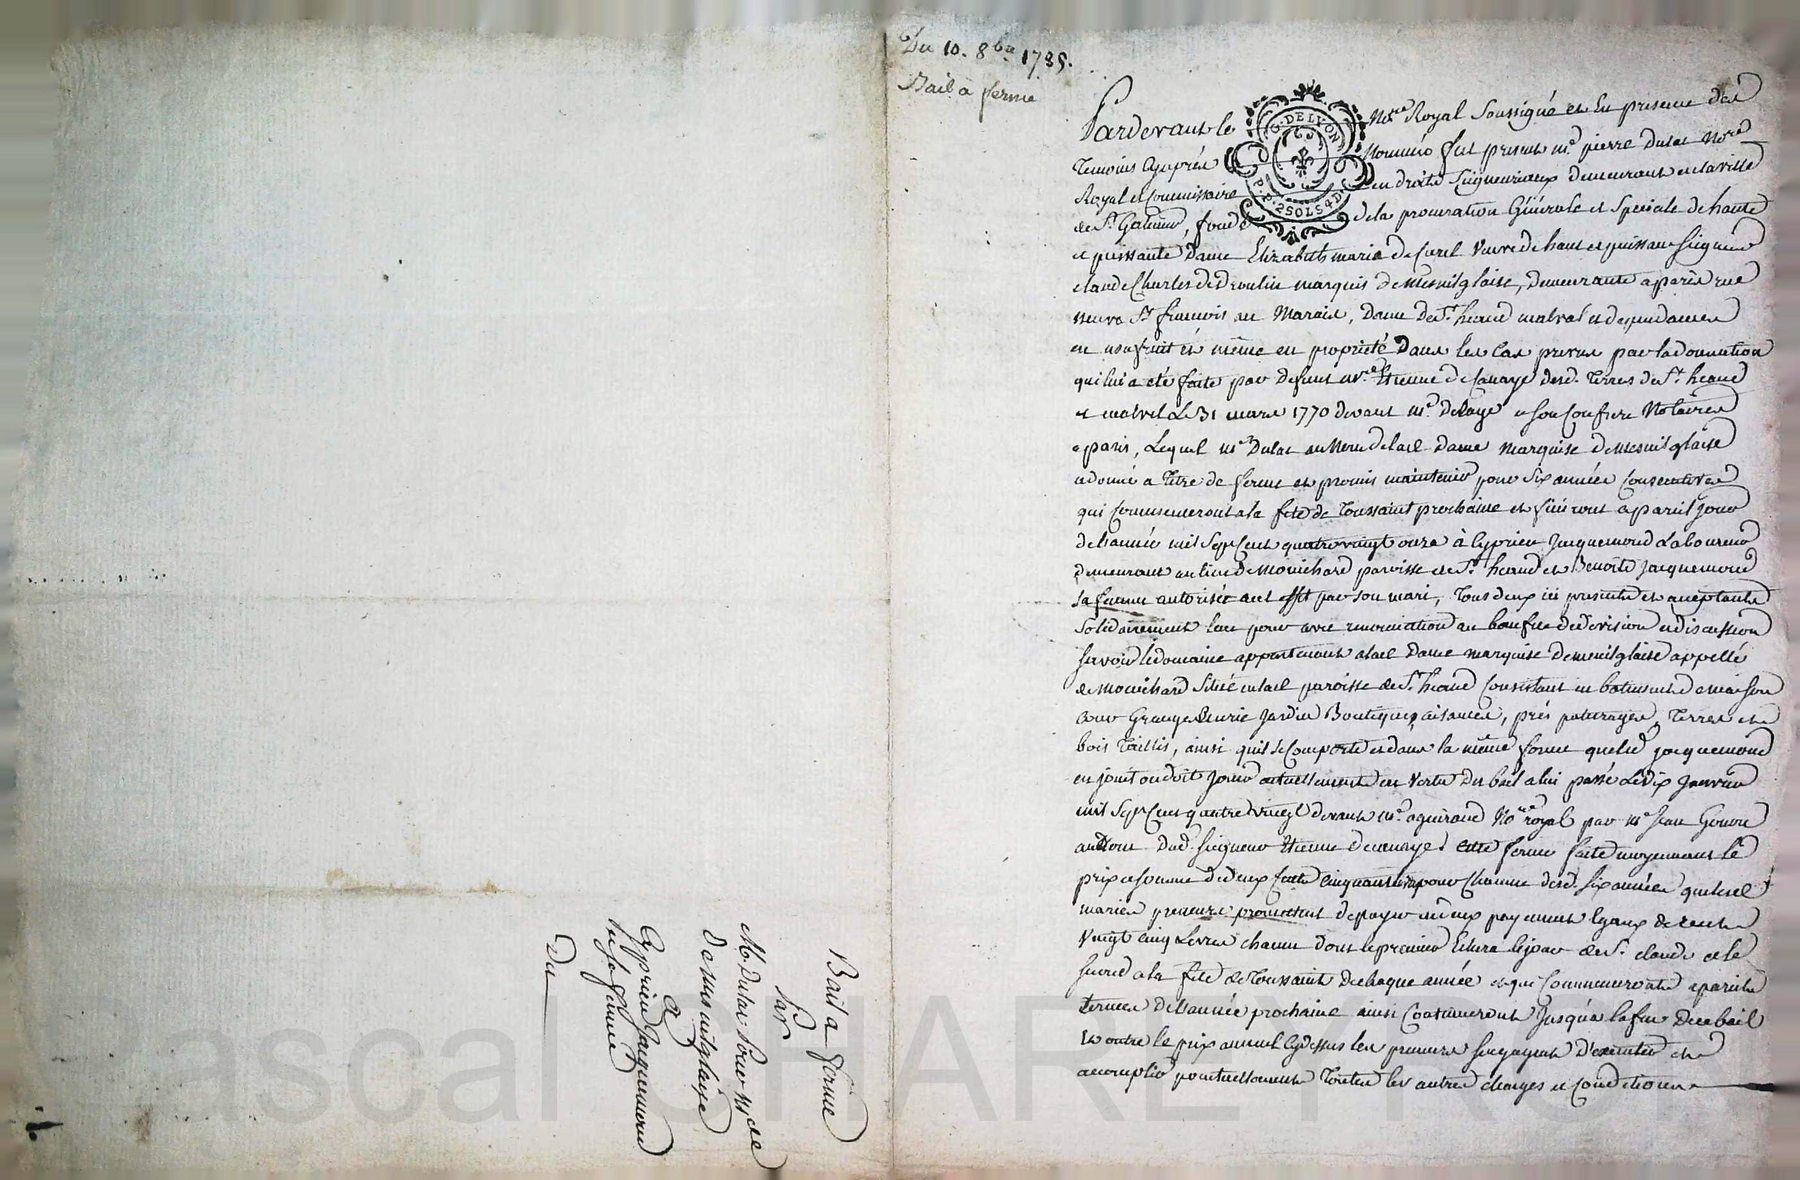 Du 10. 8bre 1785.
Bail à ferme
G. DE LYON
P. P. 2 SOLS 4 D
Pardevant le Nore Royal Soussigné et En presence des
Temoins cyaprés Nommés fut present me pierre Dulac Nore
Royal et Commissaire en droits Seigneuriaux demeurant en la ville
de St Galmier, fondé de la procuration Générale et Speciale de haute
et puissante Dame Elizabeth marie de Curel Veuve de haut et puissant Seigneur
claude Charles de marquis de Mesnilglaise, demeurante a paris rue
neuve St francois au Marais, Dame de St heand malval et dependances
en usufruit et même en propriété Dans les Cas prevus par la donnation
qui lui a été faite par defunt Etienne desd. Terres de St heand
et malval Le 31 mars 1770 devant me et son Confrere Notaires
a paris, Lequel me Dulac au Nom de lad Dame Marquise de Mesnilglaise
a donné a Titre de ferme et promis maintenir pour Six années Consecutives
qui Commenceront a la fete de Toussaint prochaine et finiront a pareil jour
de L'année mil Sept Cent quatre vingt onze à Cyprien Jacquemond Laboureur
demeurant au lieu de Mouichard paroisse de St heand et Benoite Jacquemond
sa femme autorisée a cet effet par son mari, Tous deux ici presents et acceptants
Solidairement l'un pour avec renonciation au benefice de division et discussion
Savoir le domaine appartenant a lad Dame Marquise de mesnilglaise appellé
de Mouichard Situé en lad paroisse de St heand Consistant en batiments de maison
cour Grange Ecurie Jardin aisances, prés paturages, Terres et
bois Taillis, ainsi qu'il Se Comporte et dans la même forme que led Jacquemond
en jouit ou doit jouir actuellement en Vertu du bail a lui passé Le dix Janvier
mil Sept Cent quatre vingt devant me aguiraud Nore royal par me Jean
au Nom dud. Seigneur Etienne cette ferme faite moyennant le
prix et Somme de deux Cents Cinquante pour Chacune desd. Six années que lesd
mariés preneurs promettent de payer en deux payements Egaux de cent
Vingt Cinq Livres chacun dont le premier Echera le jour de St. claude et le
Second a la fete de Toussaint de chaque année et qui Commenceront a pareils
termes de L'année prochaine ainsi Continueront Jusqu'a la fin De ce bail
Et outre le prix annuel Cydessus les preneurs Sengagent d'executer et
accomplir ponctuellement Toutes les autres charges et Conditions
Bail a ferme
Par
Me Dulac Pour Me de
De mesnilglaise
a
Cyprien Jacquemond
et sa femme
Du
Pascal CHAREYRON